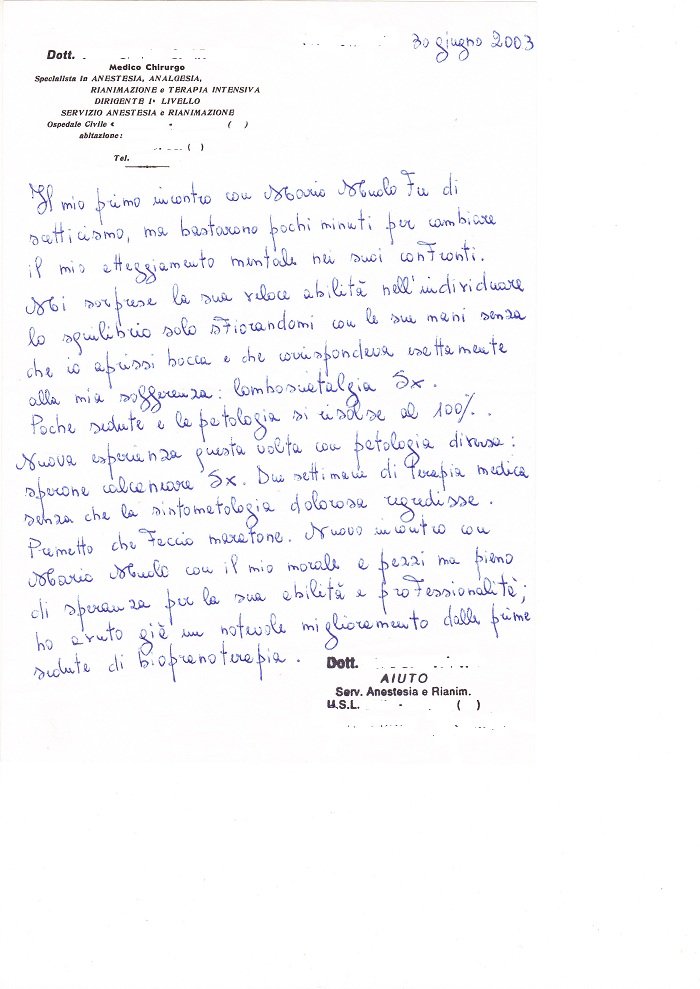 30 giugno 2003
Dott.
Medico Chirurgo
Specialista in ANESTESIA, ANALGESIA,
RIANIMAZIONE e TERAPIA INTENSIVA
DIRIGENTE I° LIVELLO
SERVIZIO ANESTESIA e RIANIMAZIONE
Ospedale Civile ( )
abitazione:
( )
Tel.
Il mio primo incontro con Mario Muolo fu di
scetticismo, ma bastarono pochi minuti per cambiare
il mio atteggiamento mentale nei suoi confronti.
Mi sorprese la sua veloce abilità nell'individuare
lo squilibrio solo sfiorandomi con le sue mani senza
che io aprissi bocca e che corrispondeva esattamente
alla mia sofferenza: lombosciatalgia Sx.
Poche sedute e la patologia si risolse al 100%.
Nuova esperienza questa volta con patologia diversa:
sperone calcaneare Sx. Due settimane di terapia medica
senza che la sintomatologia dolorosa regredisse.
Premetto che faccio maratone. Nuovo incontro con
Mario Muolo con il mio morale a pezzi ma pieno
di speranza per la sua abilità e professionalità;
ho avuto già un notevole miglioramento dalle prime
sedute di biopranoterapia.
Dott.
AIUTO
Serv. Anestesia e Rianim.
U.S.L. - ( )